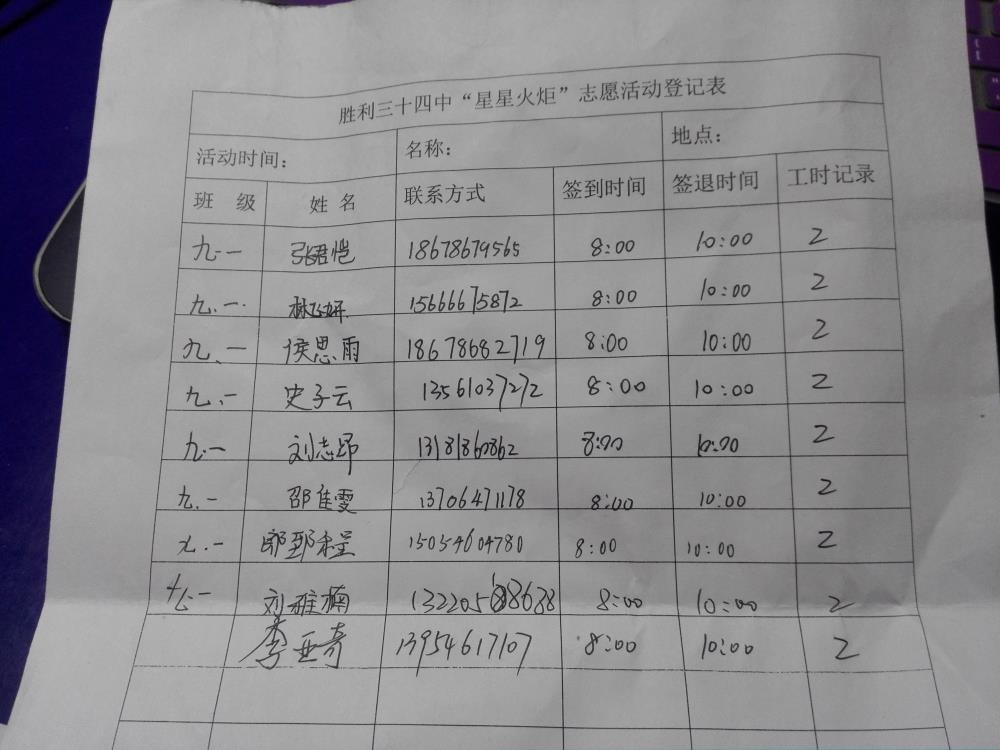 胜利三十四中“星星火炬”志愿活动登记表
活动时间: 名称: 地点:
班 级 姓 名 联系方式 签到时间 签退时间 工时记录
九.一 张君恺 18678679565 8:00 10:00 2
九.一. 15666675872 8:00 10:00 2
九.一 侯思雨 18678682719 8:00 10:00 2
九.一 史子云 13561037272 8:00 10:00 2
九.一 刘志昂 13181860862 8:00 10:00 2
九.一 邵佳雯 13706471178 8:00 10:00 2
九.一 15054604780 8:00 10:00 2
一 刘雅楠 8:00 10:00 2
李亚奇 13954617107 8:00 10:00 2